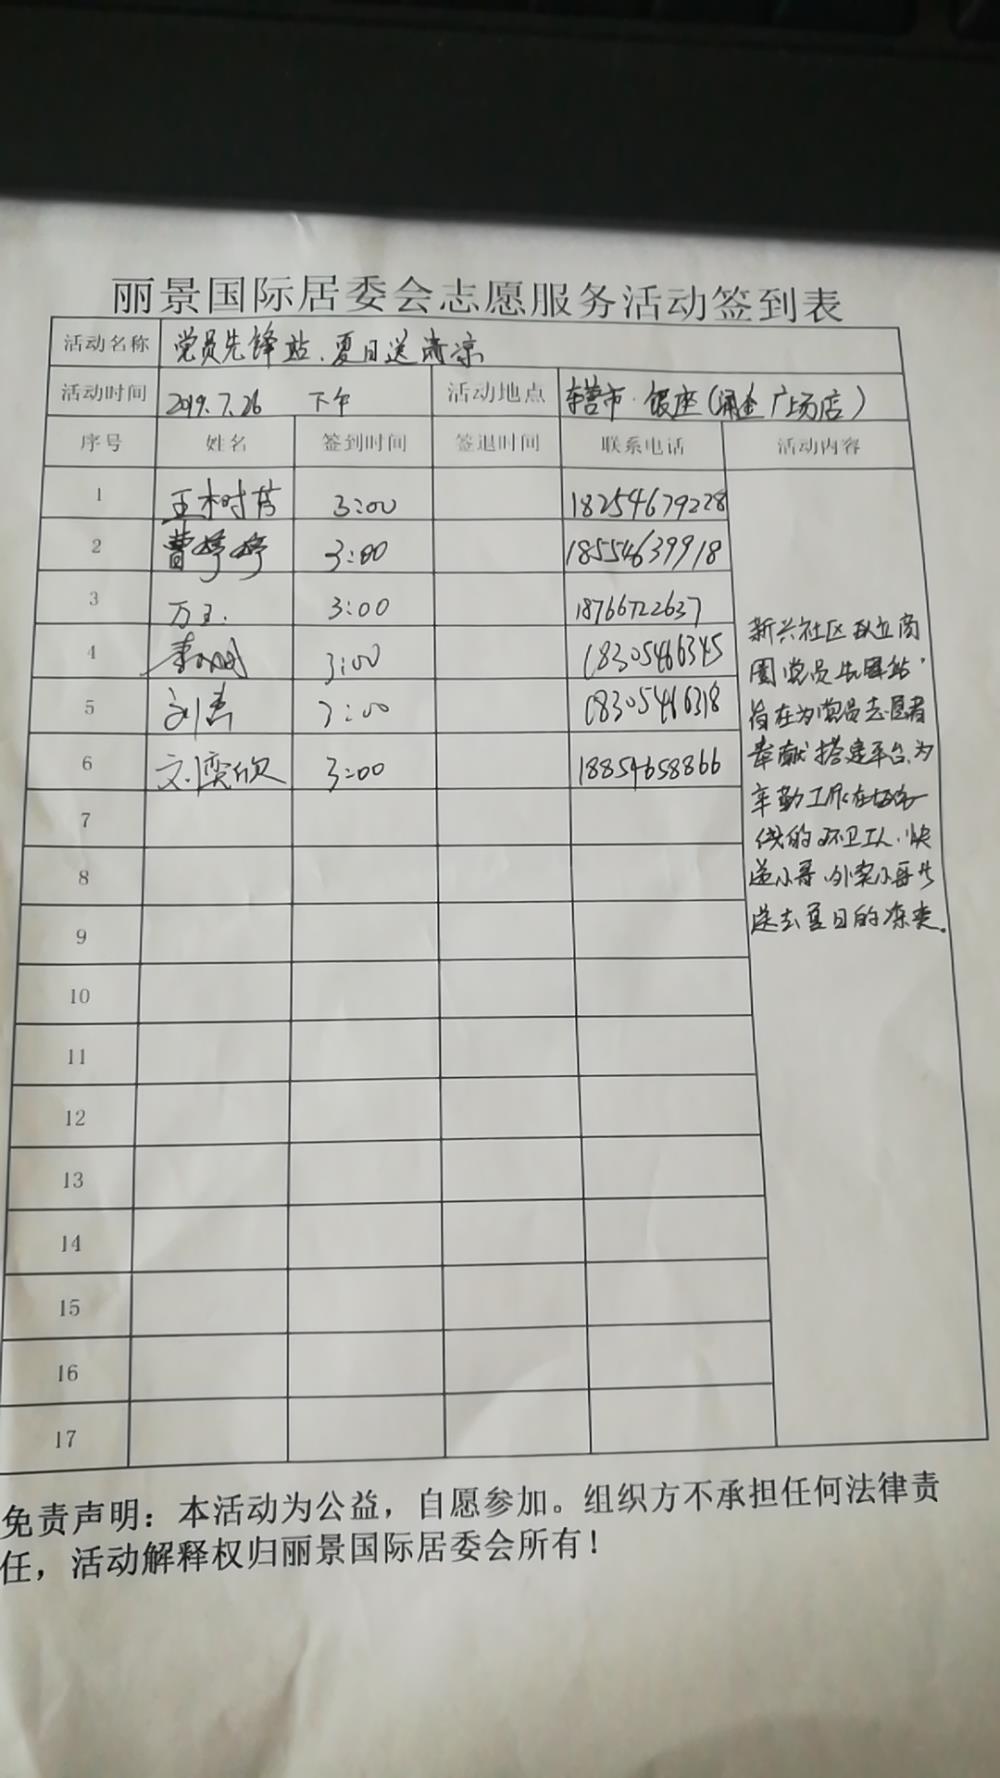 丽景国际居委会志愿服务活动签到表
活动名称 党员先锋站、夏日送清凉
活动时间 2019.7.26 下午 活动地点 东营市·银座(涌金广场店)
序号 姓名 签到时间 签退时间 联系电话 活动内容
1 王树芳 3:00 18254679228
2 曹婷婷 3:00 18554639918
3 万玉 3:00 18766722637
4 3:00 18305466345
5 刘杰 3:00 18305466318
6 刘奕欣 3:00 18854658866
7
8
9
10
11
12
13
14
15
16
17
新兴社区设立商
圈党员先锋站,
旨在为党员志愿者
奉献搭建平台,为
辛勤工作在一
线的环卫工人、快
递小哥、外卖小哥
送去夏日的凉爽。
免责声明：本活动为公益，自愿参加。组织方不承担任何法律责
任，活动解释权归丽景国际居委会所有！